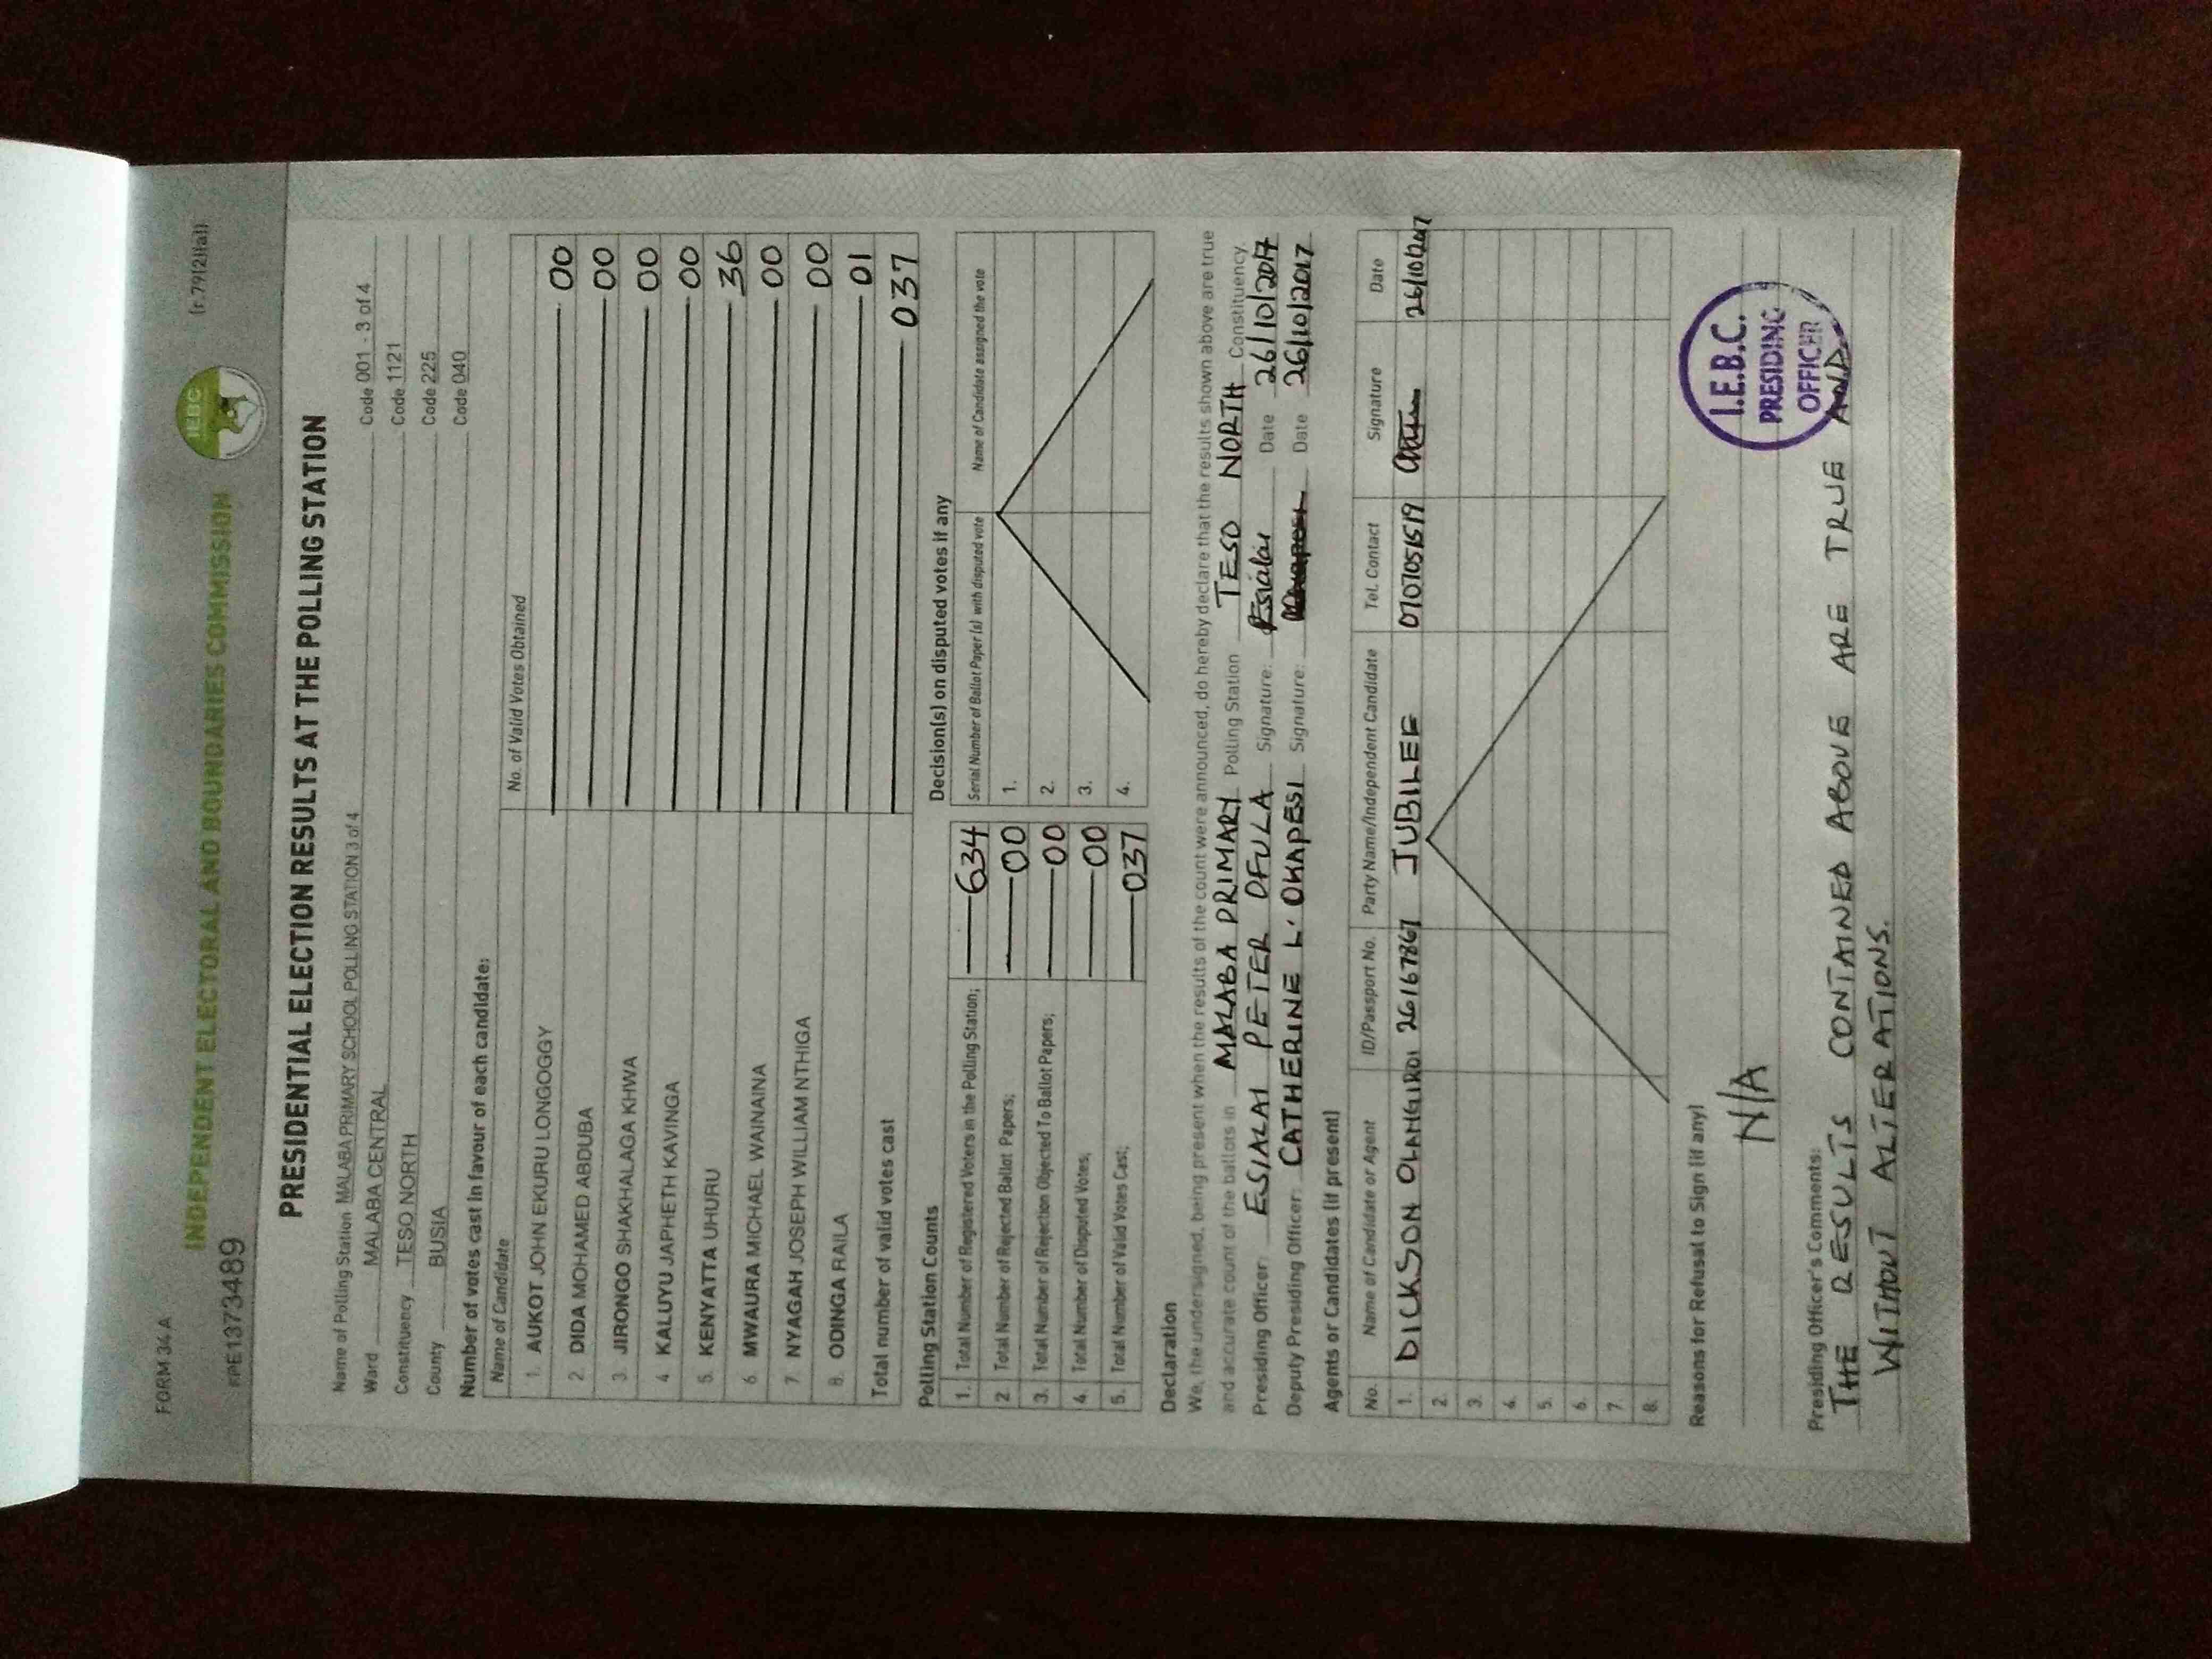 FORM 34 A
(r.79(2)(a))
INDEPENDENT ELECTORAL AND BOUNDARIES COMMISSION
IEBC
PRE1373489
PRESIDENTIAL ELECTION RESULTS AT THE POLLING STATION
Name of Polling Station MALABA PRIMARY SCHOOL POLLING STATION 3 of 4 Code 001 - 3 of 4
Ward MALABA CENTRAL Code 1121
Constituency TESO NORTH Code 225
County BUSIA Code 040
Number of votes cast in favour of each candidate:
Name of Candidate No. of Valid Votes Obtained
1. AUKOT JOHN EKURU LONGOGGY 00
2. DIDA MOHAMED ABDUBA 00
3. JIRONGO SHAKHALAGA KHWA 00
4 KALUYU JAPHETH KAVINGA 00
5. KENYATTA UHURU 36
6. MWAURA MICHAEL WAINAINA 00
7. NYAGAH JOSEPH WILLIAM NTHIGA 00
8. ODINGA RAILA 01
Total number of valid votes cast 037
Polling Station Counts
1. Total Number of Registered Voters in the Polling Station; 634
2 Total Number of Rejected Ballot Papers; 00
3. Total Number of Rejection Objected To Ballot Papers; 00
4. Total Number of Disputed Votes; 00
5. Total Number of Valid Votes Cast; 037
Decision(s) on disputed votes if any
Serial Number of Ballot Paper (s) with disputed vote Name of Candidate assigned the vote
1.
2.
3.
4.
Declaration
We, the undersigned, being present when the results of the count were announced, do hereby declare that the results shown above are true
and accurate count of the ballots in MALABA PRIMARY Polling Station TESO NORTH Constituency.
Presiding Officer: ESIALAI PETER OFULA Signature: Date 26/10/2017
Deputy Presiding Officer: CATHERINE L. OKAPESI Signature: Date 26/10/2017
Agents or Candidates (if present)
No. Name of Candidate or Agent ID/Passport No. Party Name/Independent Candidate Tel. Contact Signature Date
1. DICKSON 26167867 JUBILEE 0707051519 26/10/2017
2.
3.
4.
5.
6.
7.
8.
Reasons for Refusal to Sign (if any)
N/A
I.E.B.C.
PRESIDING
OFFICER
Presiding Officer's Comments:
THE RESULTS CONTAINED ABOVE ARE TRUE AND
WITHOUT ALTERATIONS.